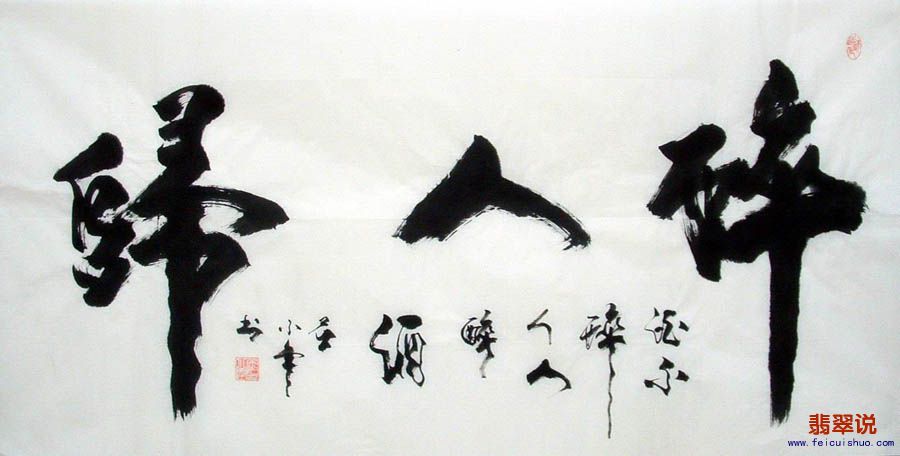 醉人歸
酒不
醉
人人
醉
酒
小
书
翡翠说
www.feicuishuo.com